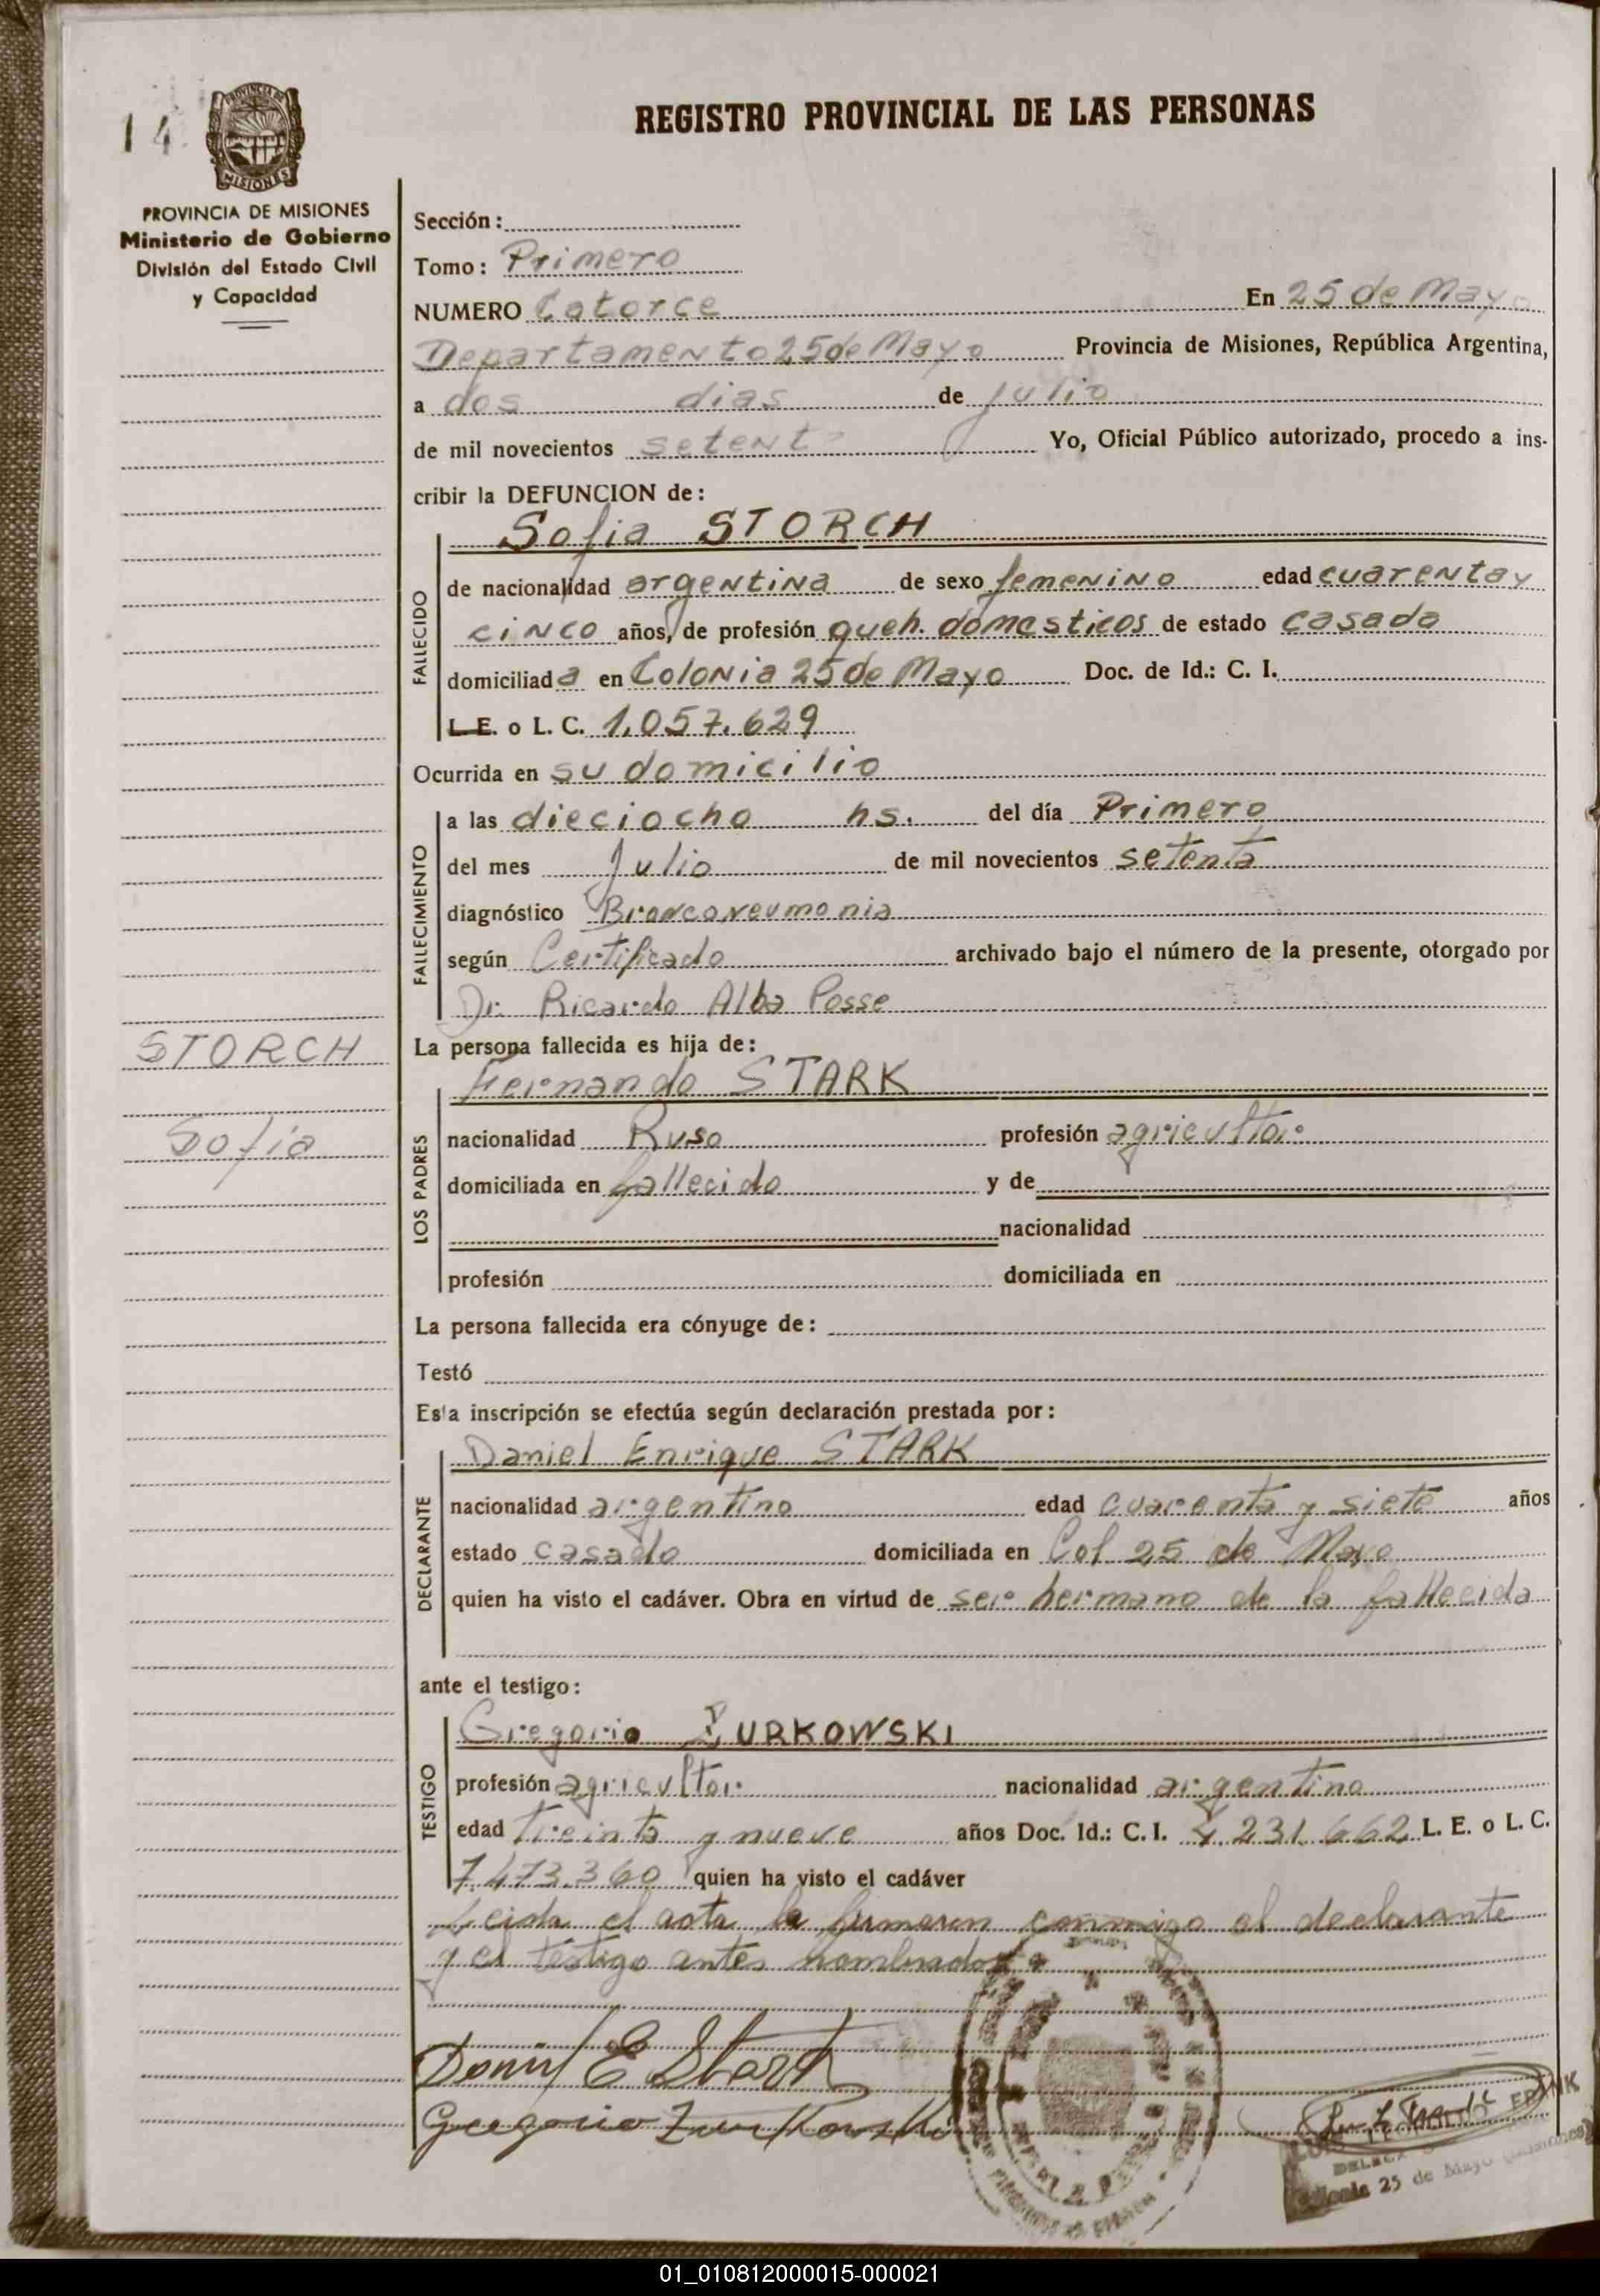 14
REGISTRO PROVINCIAL DE LAS PERSONAS
PROVINCIA DE MISIONES
MISIONES
PROVINCIA DE MISIONES
Ministerio de Gobierno
División del Estado Civil
y Capacidad
Sección:
Tomo: Primero
NUMERO Catorce En 25 de Mayo
Departamento 25 de Mayo Provincia de Misiones, República Argentina,
a dos dias de julio
de mil novecientos setenta Yo, Oficial Público autorizado, procedo a ins-
cribir la DEFUNCION de:
Sofia STORCH
FALLECIDO
de nacionalidad argentina de sexo femenino edad cuarenta y
cinco años, de profesión queh. domesticos de estado casada
domiciliada en Colonia 25 de Mayo Doc. de Id.: C. I.
L.E. o L. C. 1.057.629
Ocurrida en su domicilio
FALLECIMIENTO
a las dieciocho hs. del día Primero
del mes Julio de mil novecientos setenta
diagnóstico Bronconeumonia
según Certificado archivado bajo el número de la presente, otorgado por
Dr. Ricardo Alba Posse
STORCH
Sofia
La persona fallecida es hija de:
Fernando STARK
LOS PADRES
nacionalidad Ruso profesión agricultor
domiciliada en fallecido y de
nacionalidad
profesión domiciliada en
La persona fallecida era cónyuge de:
Testó
Esta inscripción se efectúa según declaración prestada por:
Daniel Enrique STARK
DECLARANTE
nacionalidad argentino edad cuarenta y siete años
estado casado domiciliada en Col 25 de Mayo
quien ha visto el cadáver. Obra en virtud de ser hermano de la fallecida
ante el testigo:
Gregorio ZURKOWSKI
TESTIGO
profesión agricultor nacionalidad argentino
edad treinta y nueve años Doc. Id.: C. I. 4.231.662 L. E. o L. C.
7.473.360 quien ha visto el cadáver
Leida el acta la firmaron conmigo el declarante
y el testigo antes nombrados
Daniel E Stark
Gregorio Zurkowski
FRANK
Colonia 25 de Mayo (Misiones)
01_010812000015-000021